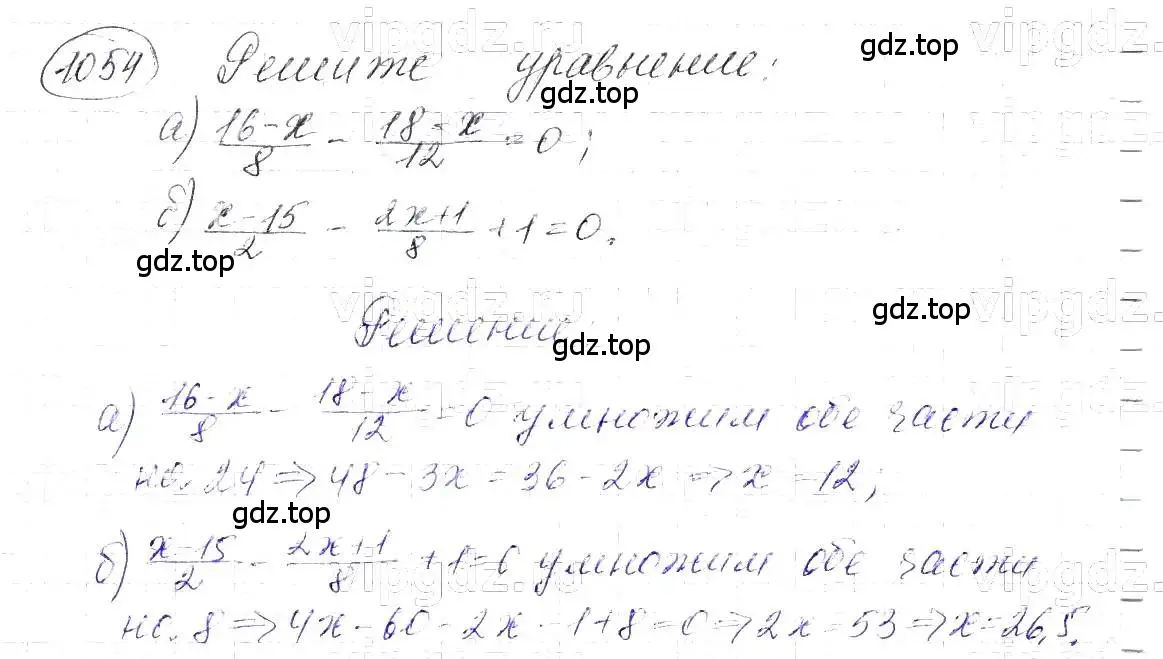 1054 Решите уравнение:
а) (16-x)/8 - (18-x)/12 = 0;
б) (x-15)/2 - (2x+1)/8 + 1 = 0.
Решение
а) (16-x)/8 - (18-x)/12 = 0 умножим обе части
на 24 => 48 - 3x = 36 - 2x => x = 12;
б) (x-15)/2 - (2x+1)/8 + 1 = 0 умножим обе части
на 8 => 4x - 60 - 2x - 1 + 8 = 0 => 2x = 53 => x = 26,5.
gdz.top
gdz.top
gdz.top
gdz.top
gdz.top
gdz.top
vipgdz.ru
vipgdz.ru
vipgdz.ru
vipgdz.ru